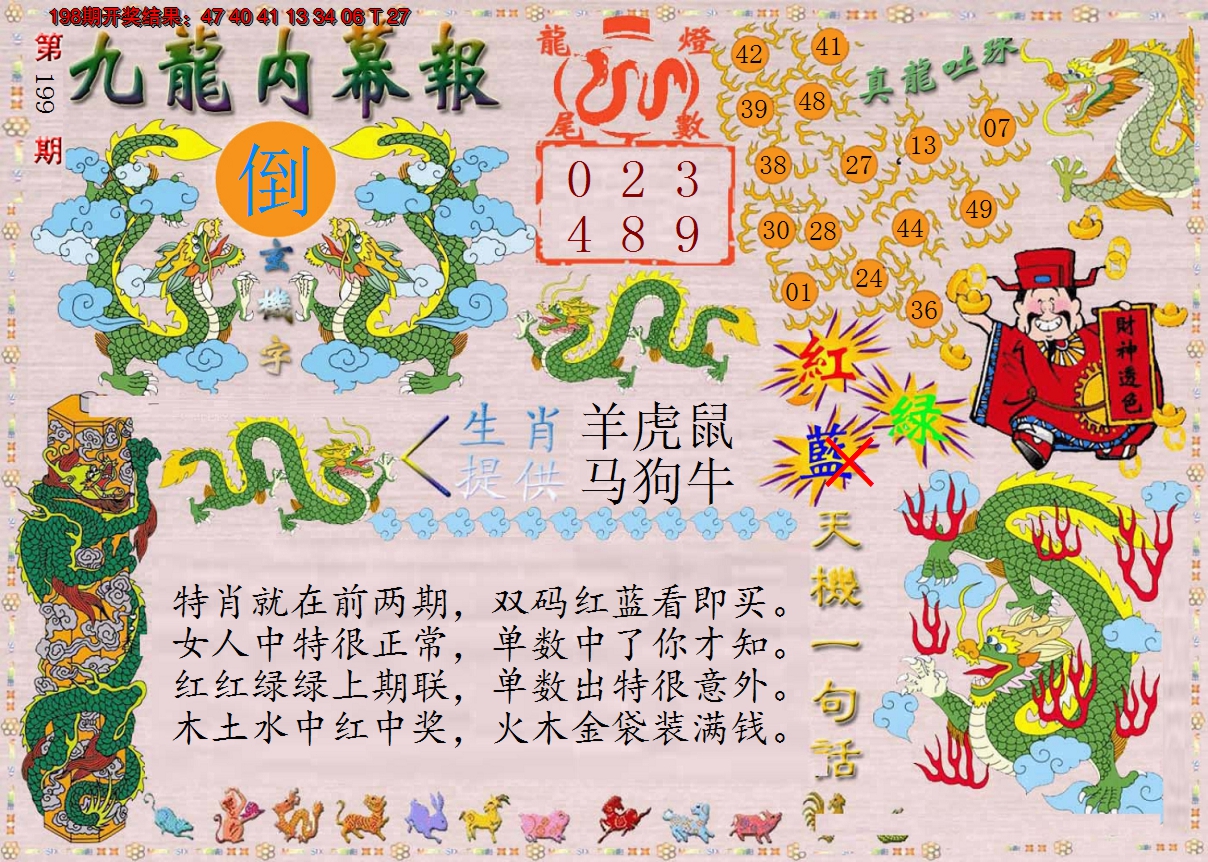 198期开奖结果：47 40 41 13 34 06 T 27
第199期
九龍内幕報
倒
玄機字
龍燈
尾數
0 2 3
4 8 9
真龍吐珠
42 41
39 48
38 27 13 07
30 28 44 49
01 24 36
財神透色
紅
綠
藍
生肖 羊虎鼠
提供 马狗牛
天機一句話
特肖就在前两期，双码红蓝看即买。
女人中特很正常，单数中了你才知。
红红绿绿上期联，单数出特很意外。
木土水中红中奖，火木金袋装满钱。